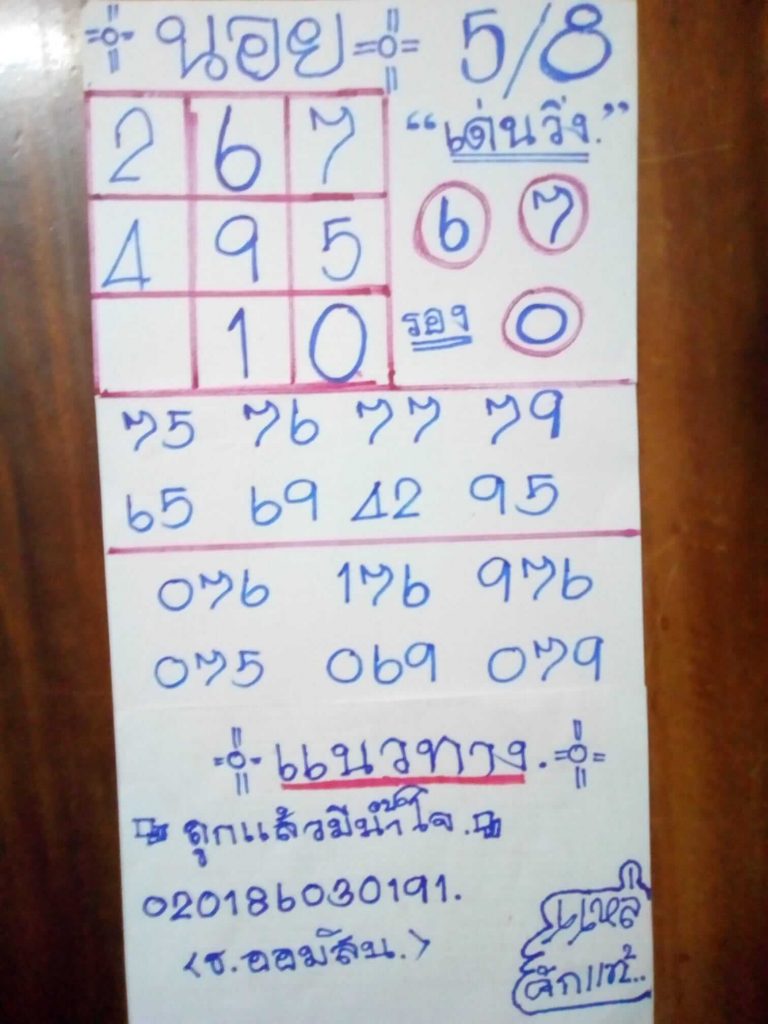 นอย 5/8
2 6 7
4 9 5
1 0
"เด่นวิ่ง."
6 7
รอง 0
75 76 77 79
65 69 42 95
076 176 976
075 069 079
แนวทาง.
ถูกแล้วมีน้ำใจ.
020186030191.
<ธ.ออมสิน.>